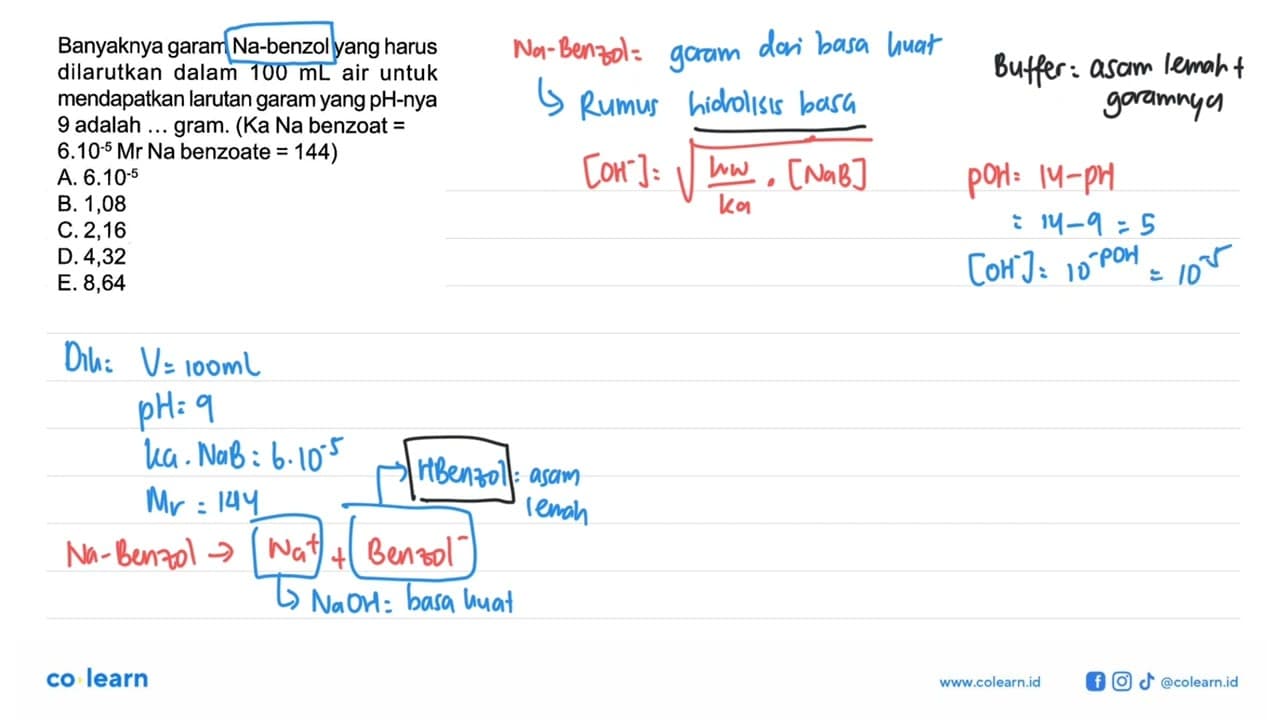 Banyaknya garam Na-benzol yang harus
dilarutkan dalam 100 mL air untuk
mendapatkan larutan garam yang pH-nya
9 adalah ... gram. (Ka Na benzoat =
6.10⁻⁵ Mr Na benzoate = 144)
A. 6.10⁻⁵
B. 1,08
C. 2,16
D. 4,32
E. 8,64
Na-Benzol = garam dari basa kuat
↳ Rumus hidrolisis basa
[OH⁻] = √(kw/ka . [NaB])
Buffer : asam lemah +
garamnya
pOH = 14 - pH
= 14 - 9 = 5
[OH⁻] = 10^-pOH = 10⁻⁵
Dik: V = 100mL
pH = 9
ka . NaB : 6.10⁻⁵
Mr = 144
HBenzol : asam
lemah
Na-Benzol → Na⁺ + Benzol⁻
↳ NaOH = basa kuat
co learn
www.colearn.id
@colearn.id